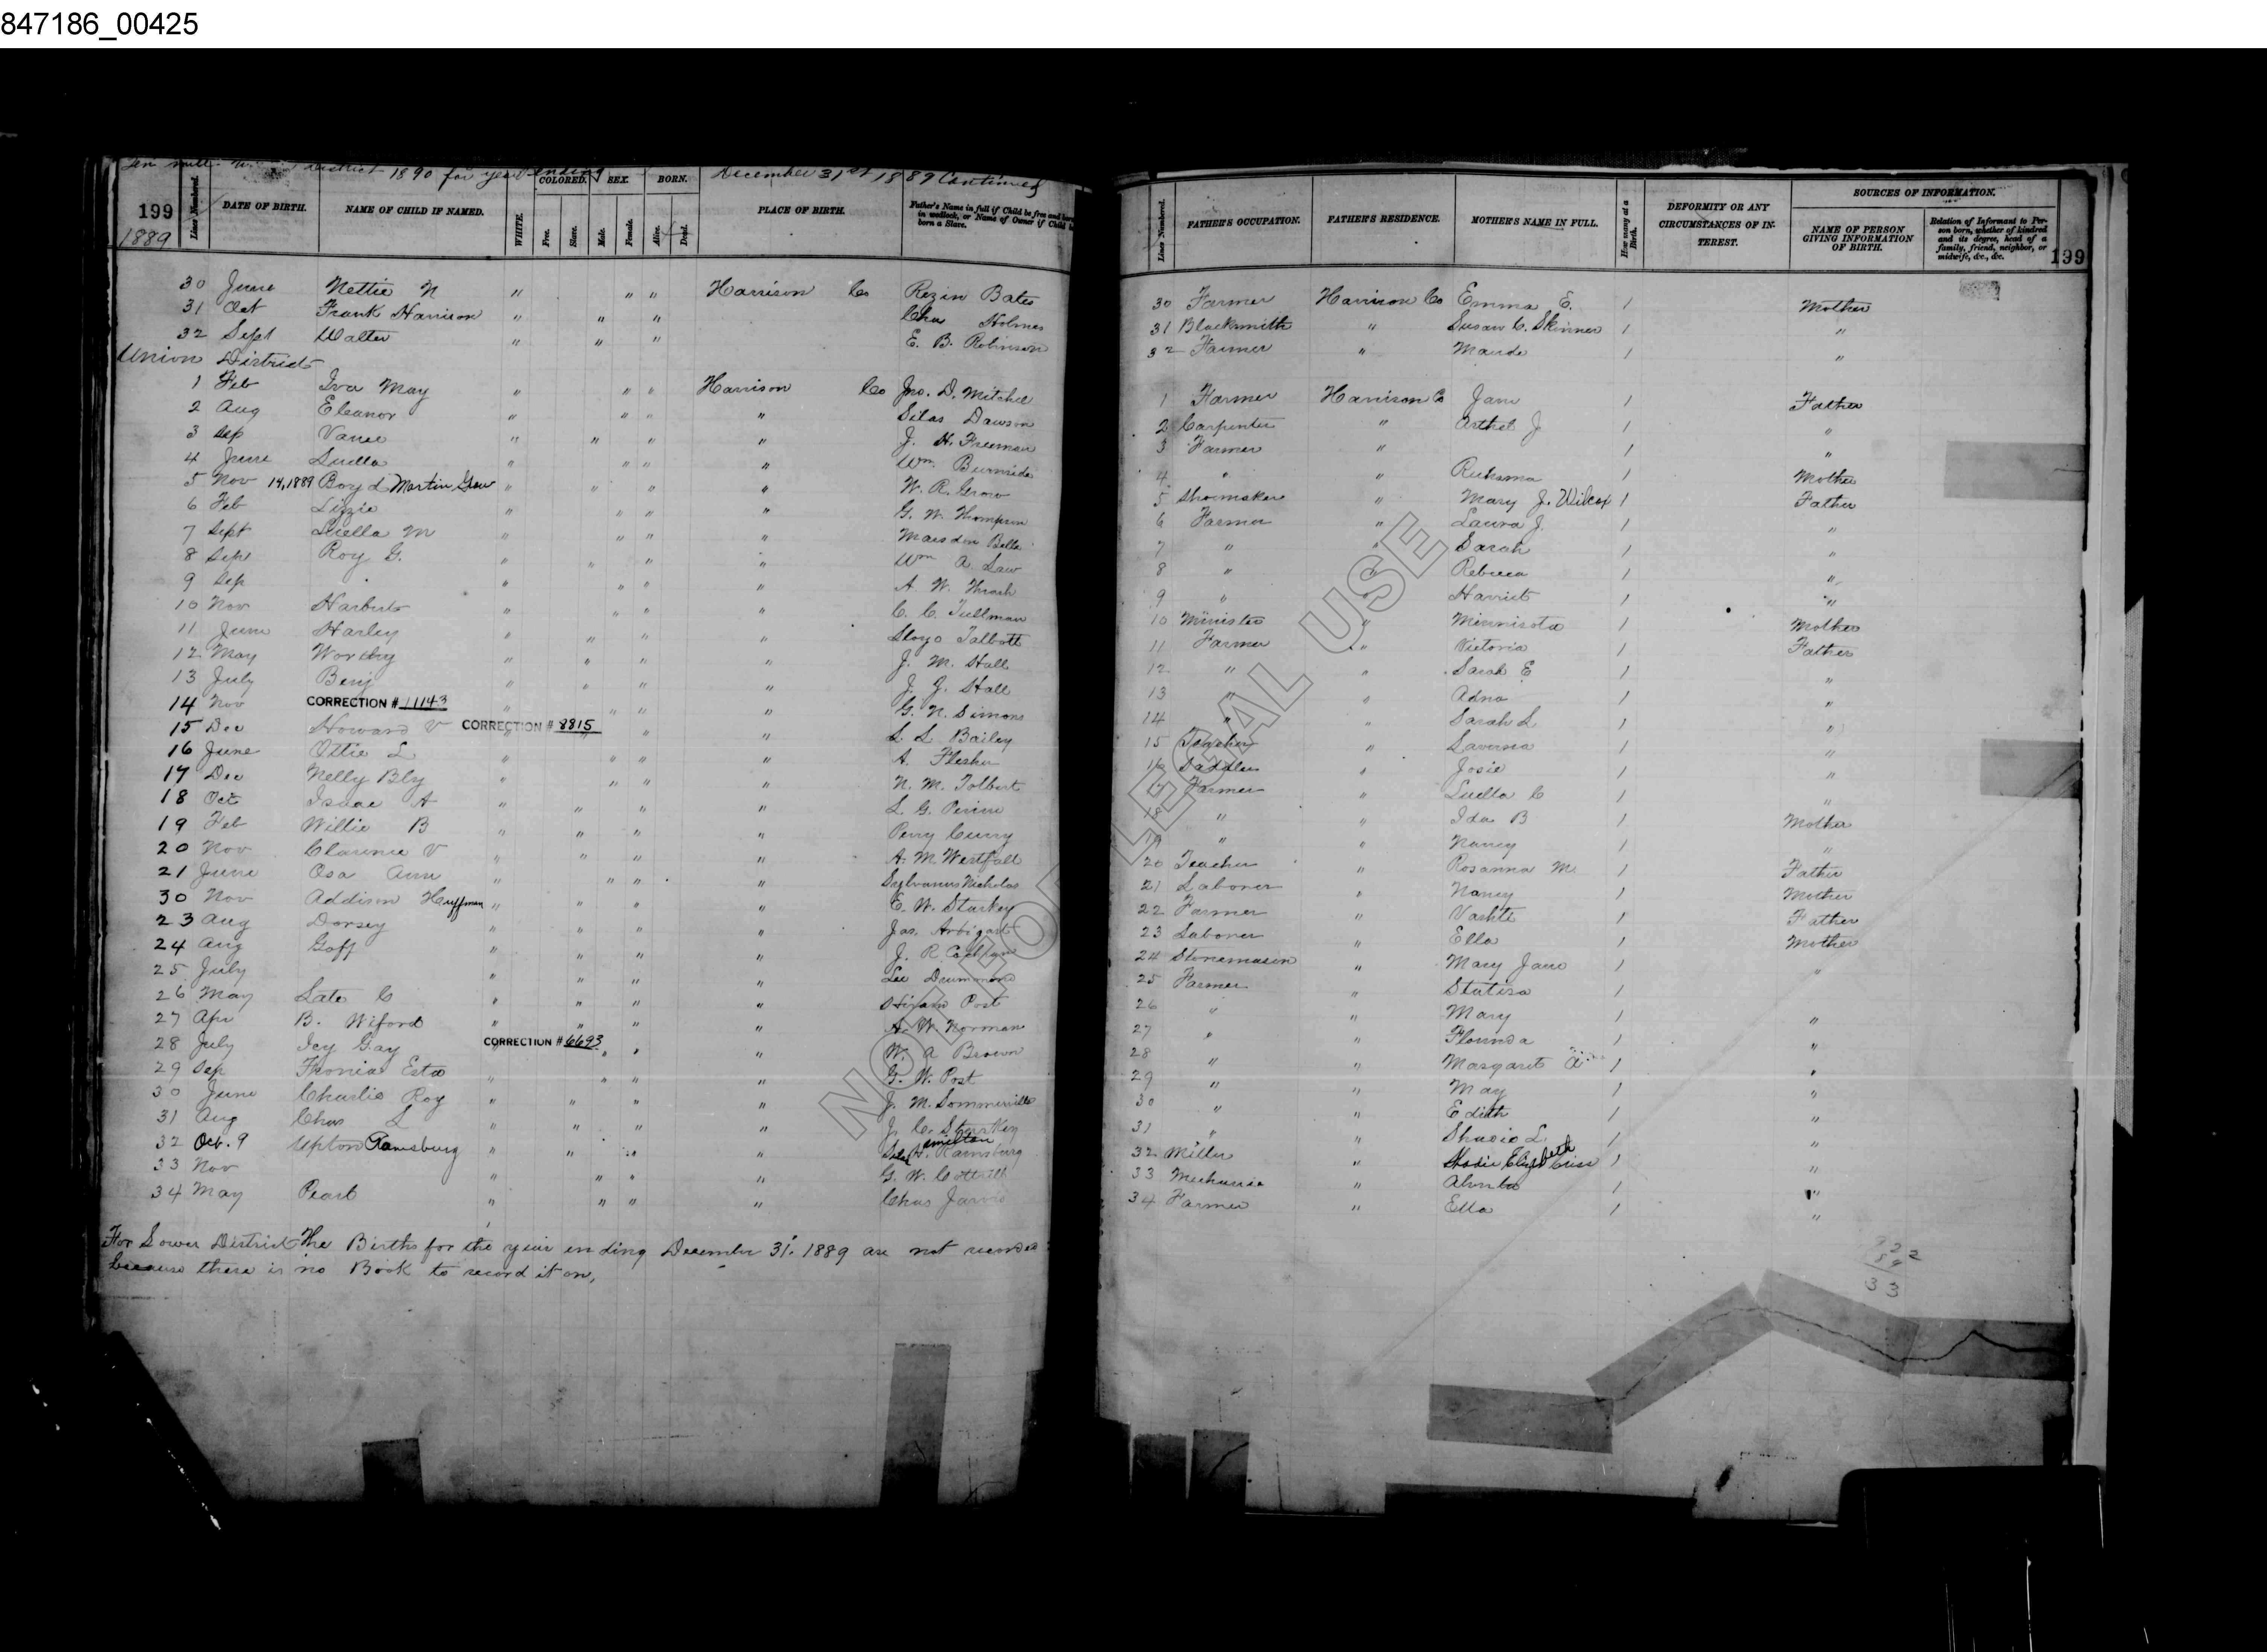 847186_00425
District 1890 for year ending December 31st 1889 Continued
199
1889
Lines Numbered.
DATE OF BIRTH.
NAME OF CHILD IF NAMED.
WHITE.
COLORED.
Free.
Slave.
SEX.
Male.
Female.
BORN.
Alive.
Dead.
PLACE OF BIRTH.
Father's Name in full if Child be free and born in wedlock, or Name of Owner if Child be born a Slave.
30 June Nettie N " " " Harrison Co Rezin Bates
31 Oct Frank Harrison " " " Chas Holmes
32 Sept Walter " " " E. B. Robinson
Union District
1 Feb Iva May " " " Harrison Co Jno. D. Mitchel
2 Aug Eleanor " " " " Silas Dawson
3 Sep Vance " " " " J. H. Freeman
4 June Luella " " " " Wm. Burnside
5 Nov 14, 1889 Boyd Martin Grow " " " " W. R. Grow
6 Feb Lizzie " " " " G. W. Thompson
7 Sept Luella M " " " " Belle
8 Sept Roy G. " " " " Wm A. Law
9 Sep " " " " A. W. Thrash
10 Nov Harbert " " " " C. C. Tullman
11 June Harley " " " " Lloyd Talbott
12 May Worthy " " " " J. M. Hall
13 July Benj " " " " J. J. Hall
14 Nov CORRECTION # 11143 " " " " G. N. Simons
15 Dec Howard V CORRECTION # 8815 " " " L. L. Bailey
16 June Ottie L " " " " A. Flesher
17 Dec Nelly Bly " " " " N. M. Tolbert
18 Oct Isaac A " " " " L. G. Perine
19 Feb Willie B " " " " Perry Curry
20 Nov Clarence V " " " " A. M. Westfall
21 June Osa Ann " " " " Sylvanus Nicholas
30 Nov Addison Huffman " " " " E. W. Starkey
23 Aug Dorsey " " " " Jas. Arbigast
24 Aug Goff " " " " J. R.
25 July " " " " Lee Drummond
26 May Late C " " " " Hiram Post
27 Apr B. Wiford " " " " A. W. Norman
28 July Icy Gay CORRECTION # 6693 " " " W. A Brown
29 Sep Esta " " " " G. W. Post
30 June Charlie Roy " " " " J. M. Sommerville
31 Aug Chas L " " " " J. C. Starkey
32 Oct. 9 Upton Ramsburg " " " " Ramsburg
33 Nov " " " " G. W. Cottrill
34 May Pearl " " " " Chas Jarvis
For Lower District The Births for the year ending December 31st 1889 are not recorded
because there is no Book to record it on,
Lines Numbered.
FATHER'S OCCUPATION.
FATHER'S RESIDENCE.
MOTHER'S NAME IN FULL.
How many at a Birth.
DEFORMITY OR ANY CIRCUMSTANCES OF INTEREST.
SOURCES OF INFORMATION.
NAME OF PERSON GIVING INFORMATION OF BIRTH.
Relation of Informant to Person born, whether of kindred and its degree, head of a family, friend, neighbor, or midwife, &c., &c.
199
30 Farmer Harrison Co Emma E. 1 Mother
31 Blacksmith " Susan C. Skinner 1 "
32 Farmer " Maude 1 "
1 Farmer Harrison Co Jane 1 Father
2 Carpenter " Arthel J 1 "
3 Farmer " 1 "
4 " " Ruhama 1 Mother
5 Shoemaker " Mary J. Wilcox 1 Father
6 Farmer " Laura J. 1 "
7 " " Sarah 1 "
8 " " Rebecca 1 "
9 " " Harriet 1 "
10 Minister " Minnisota 1 Mother
11 Farmer " Victoria 1 Father
12 " " Sarah E 1 "
13 " " Adna 1 "
14 " " Sarah L 1 "
15 Teacher " Laverna 1 "
16 Saddler " Josie 1 "
17 Farmer " Luella C 1 "
18 " " Ida B 1 Mother
19 " " Nancy 1 "
20 Teacher " Rosanna M. 1 Father
21 Laborer " Nancy 1 Mother
22 Farmer " Vashti 1 Father
23 Laborer " Ella 1 Mother
24 Stonemason " Mary Jane 1 "
25 Farmer " Statira 1
26 " " Mary 1 "
27 " " Florinda 1 "
28 " " Margaret A 1 "
29 " " May 1 "
30 " " Edith 1 "
31 " " L. 1 "
32 Miller " Elizabeth Criss 1 "
33 Mechanic " 1 "
34 Farmer " Ella 1 "
33
NOT FOR LEGAL USE